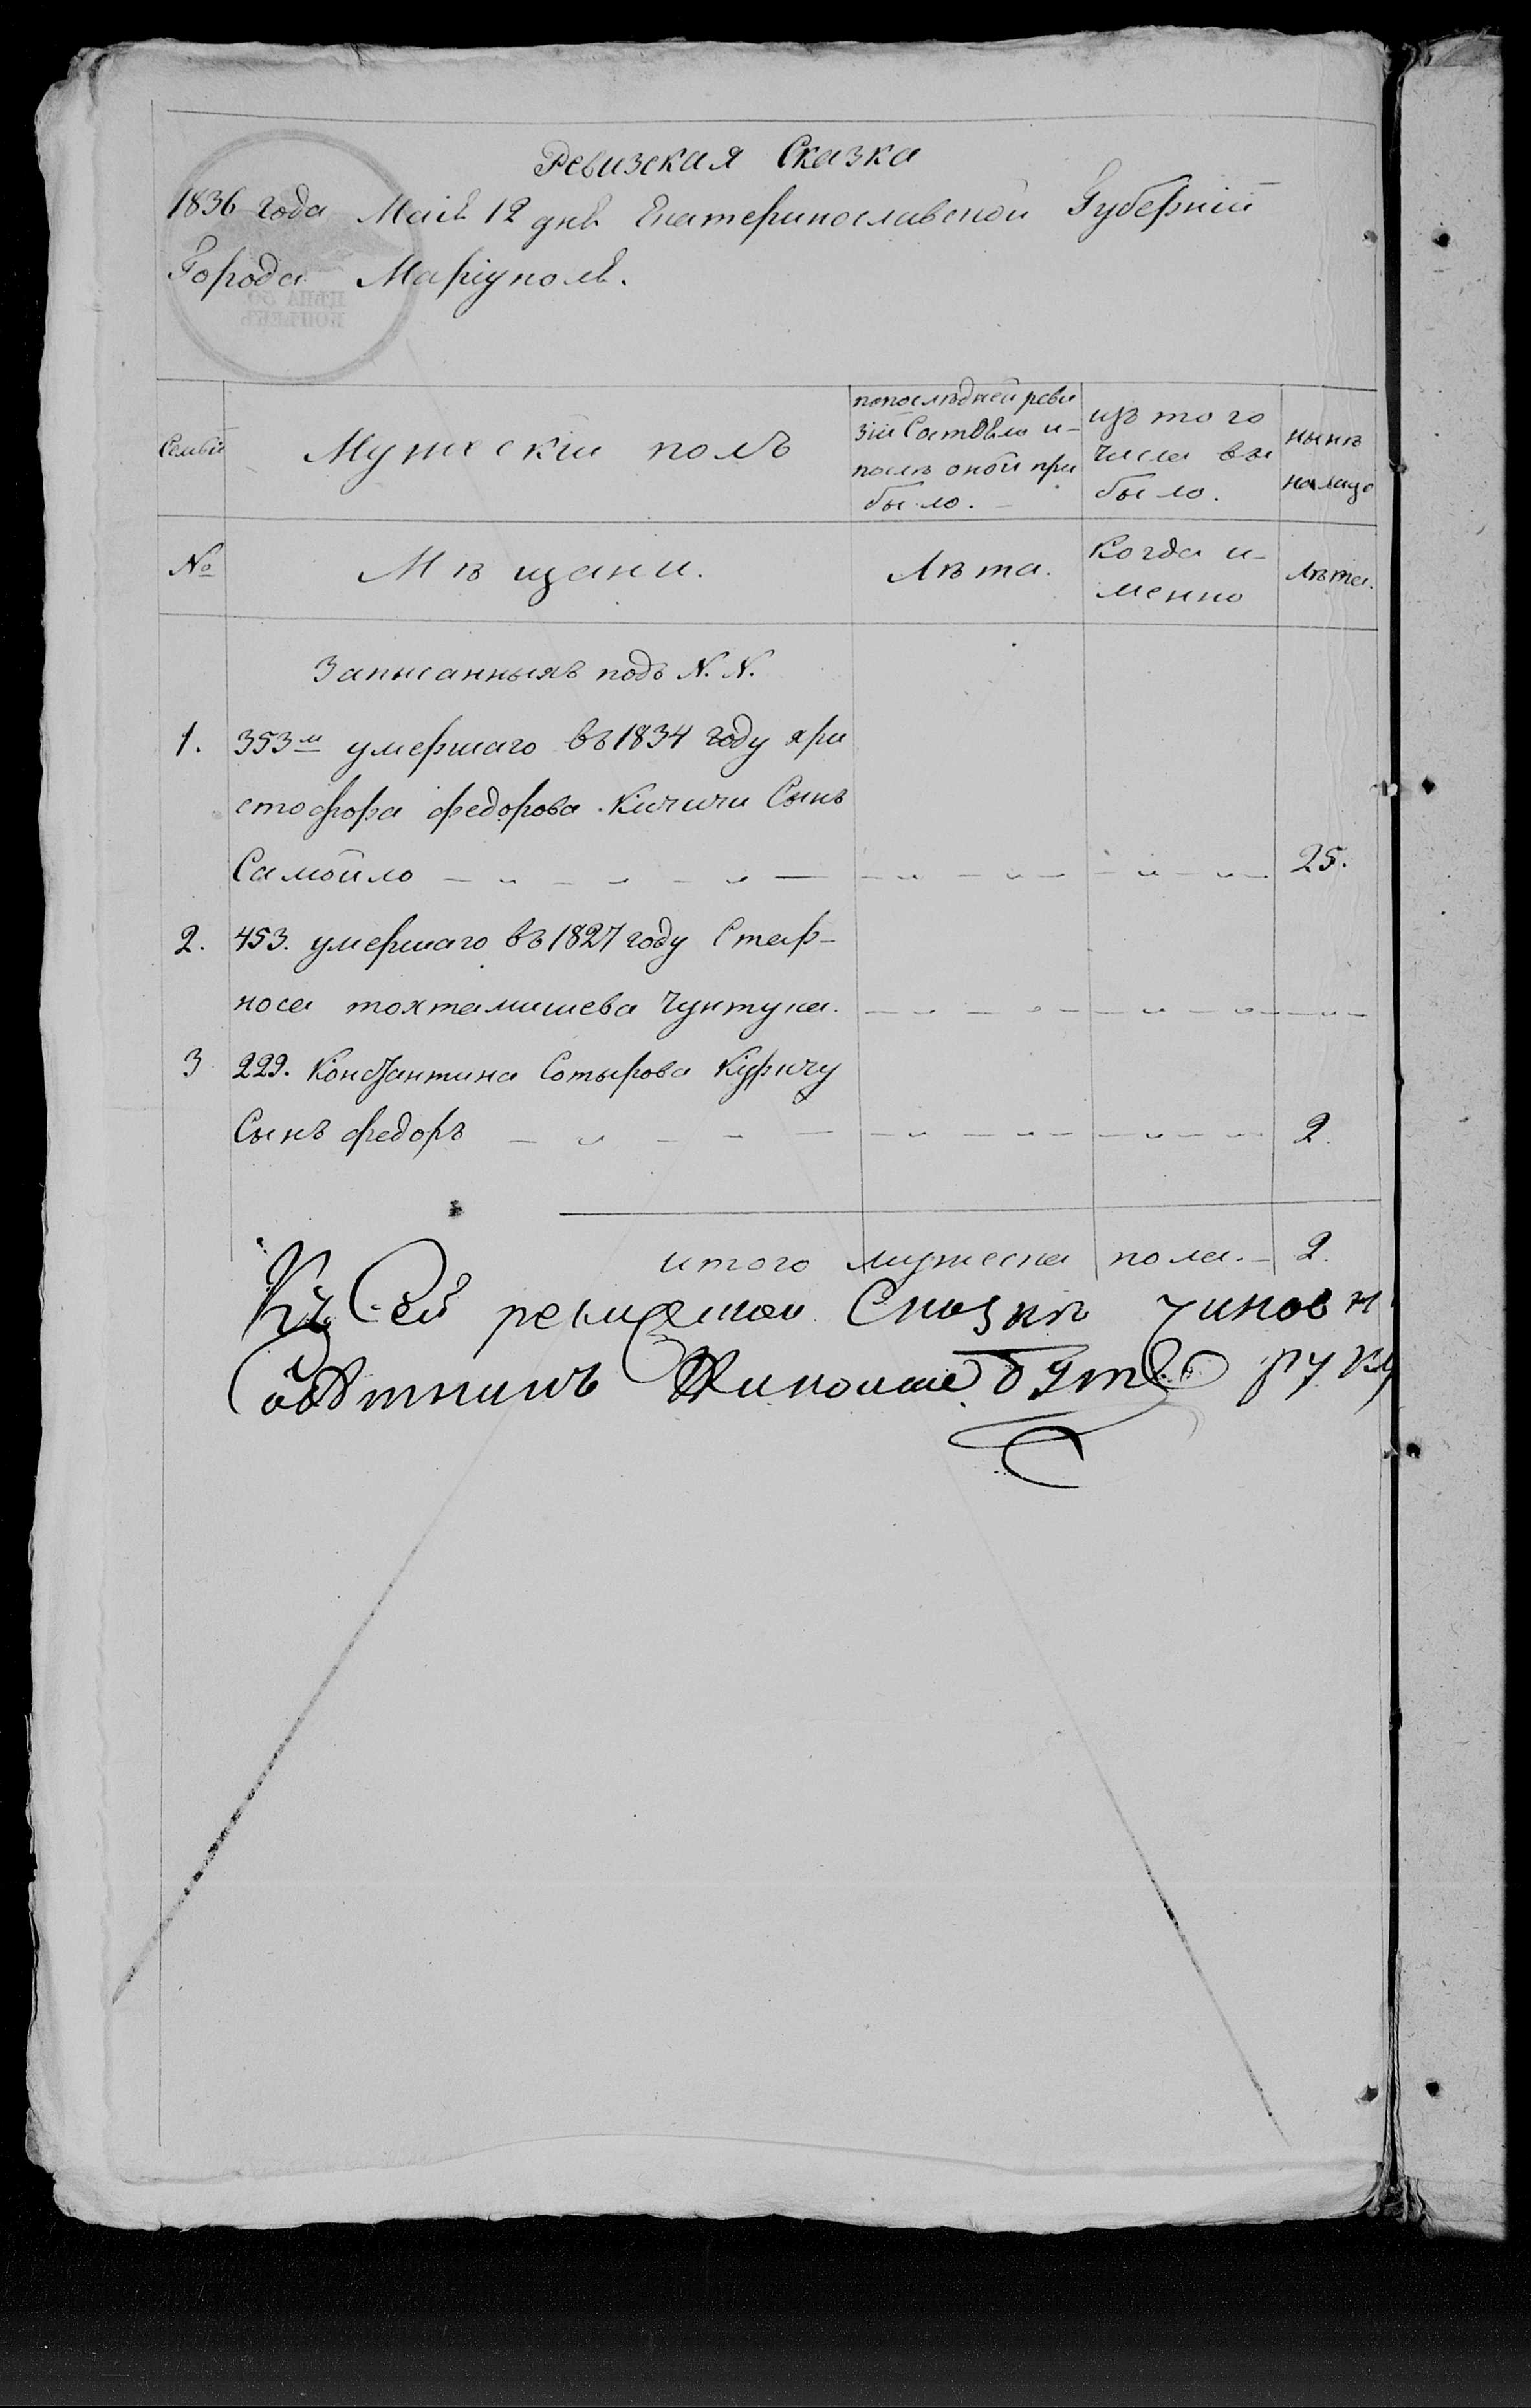 Ревизская Сказка
1836 года Маія 12 дня Екатеринославской Губерніи
Города Маріуполя.
ЦѢНА 50
КОПѢЕКЪ
Семьи
Мужескій полъ
попослѣдней реви
зіи Состояло и
послѣ оной при
было.
изъ того
числа вы
было.
нынѣ
налицо
№
Мѣщани.
Лѣта.
Когда и-
менно
Лѣта.
Записанныхъ подъ N. N.
1. 353м умершаго въ 1834 году хри
стофора федорова Кичичи Сынъ
Самойло 25.
2. 453. умершаго въ 1827 году Стаф-
носа тохтамишева Чунтука.
3 229. Константина Сотырова Куркчу
Сынъ федоръ 2.
итого мужеска пола. 2.
Къ Сей Сказкѣ
руку